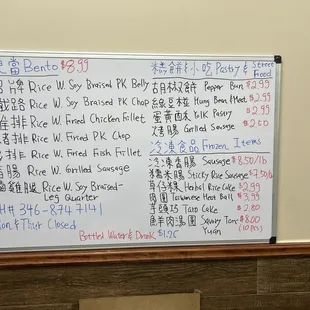 當 Bento $8.99
招牌 Rice W. Soy Braised PK Belly
鐵路 Rice W. Soy Braised PK Chop
雞排 Rice W. Fried Chicken Fillet
豬排 Rice W. Fried PK Chop
魚排 Rice W. Fried Fish Fillet
香腸 Rice W. Grilled Sausage
雞腿 Rice W. Soy Braised-
Leg Quarter
PH# 346-874-7141
Mon & Thur Closed
糕餅 & 小吃 Pastry & Street
Food
胡椒餅 Pepper Bun $2.99
Mung Bean w/Meat $2.99
蛋黃酥 Yolk Pastry $2.99
烤腸 Grilled Sausage $2.50
冷凍食品 Frozen Items
冷凍香腸 Sausage $8.50/lb
糯米腸 Sticky Rice Sausage $7.50/lb
Herbal Rice Cake $2.99
肉圓 Taiwanese Meat Ball $3.99
芋頭巧 Taro Cake $2.80
鮮肉湯圓 Savory Tang $8.00
Yuan (10 pcs)
Bottled Water & Drink $1.25